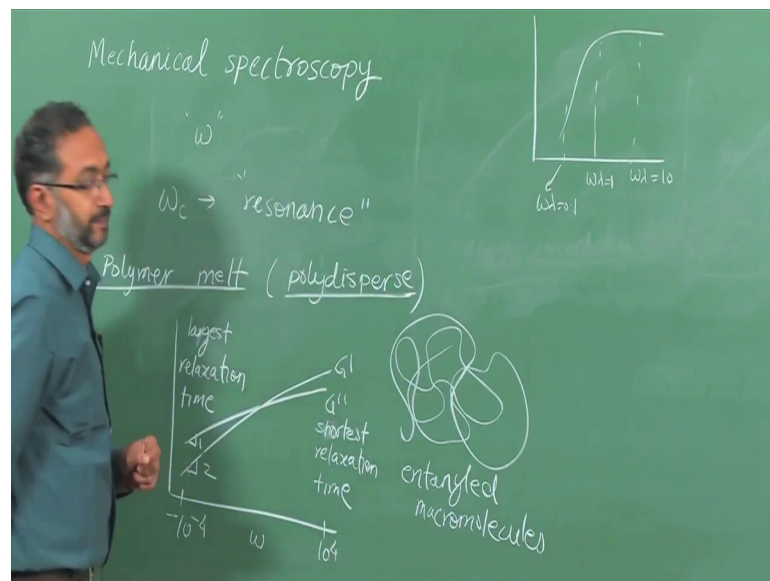 Mechanical spectroscopy
"ω"
ωc → "resonance"
Polymer melt (polydisperse)
largest
relaxation
time
G'
G"
1
2
shortest
relaxation
time
10-4
ω
104
entangled
macromolecules
ωλ=0.1
ωλ=1
ωλ=10